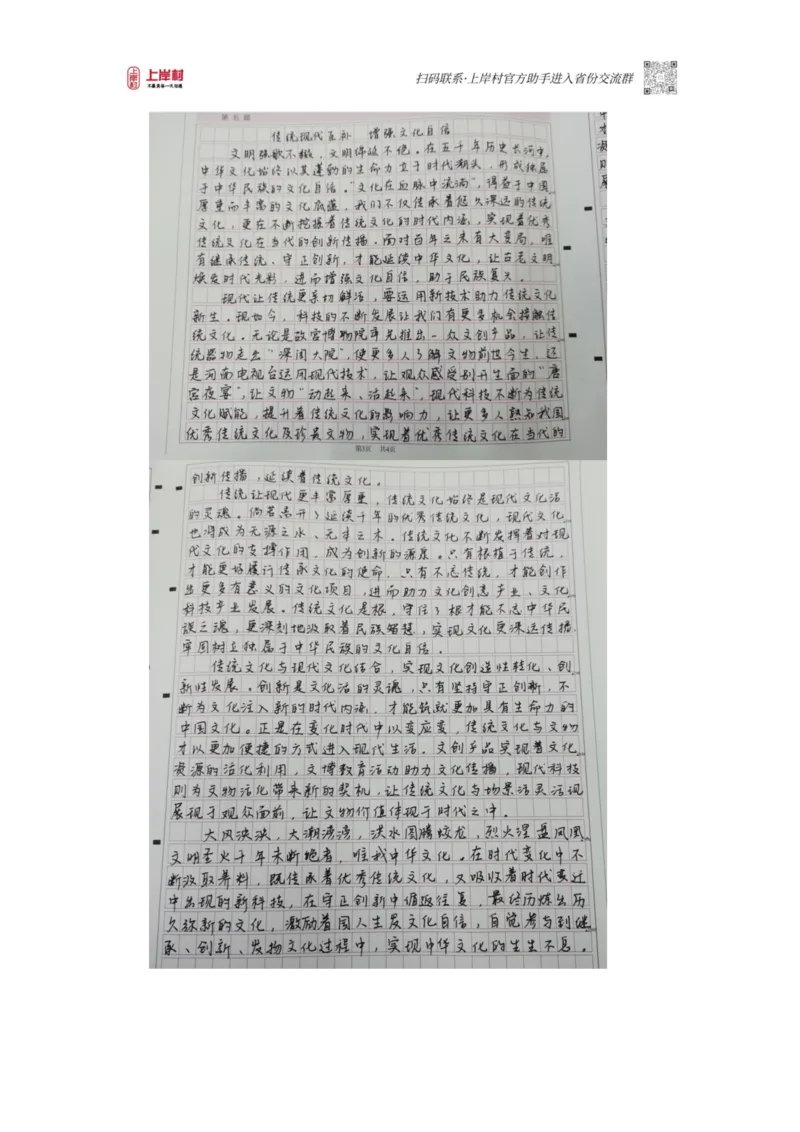 上岸村
不泯灵台·一心向道
扫码联系·上岸村官方助手进入省份交流群
第七题
传统现代互补 增强文化自信
文明强歌不辍，文明绵延不绝。在五千年历史长河中，
中华文化始终以其蓬勃的生命力立于时代潮头，形成独属
于中华民族的文化自信。“文化在血脉中流淌”，得益于中国
厚重而丰富的文化底蕴，我们不仅传承着悠久深远的传统
文化，更在不断挖掘着传统文化的时代内涵，实现着优秀
传统文化在当代的创新传播。面对百年之未有大变局，唯
有继承传统、守正创新，才能延续中华文化，让古老文明
焕发时代光彩，进而增强文化自信，助于民族复兴。
现代让传统更亲切鲜活，要运用新技术助力传统文化
新生。现如今，科技的不断发展让我们有更多机会接触传
统文化。无论是故宫博物院率先推出一众文创产品，让传
统器物走出“深闺大院”，使更多人了解文物前世今生，还
是河南电视台运用现代技术，让观众感受别开生面的“唐
宫夜宴”，让文物“动起来、活起来”，现代科技不断为传统
文化赋能，提升着传统文化的影响力，让更多人熟知我国
优秀传统文化及珍贵文物，实现着优秀传统文化在当代的
第3页 共4页
创新传播，延续着传统文化。
传统让现代更丰富厚重，传统文化始终是现代文化活
的灵魂。倘若离开了延续千年的优秀传统文化，现代文化
也将成为无源之水、无本之木。传统文化不断发挥着对现
代文化的支撑作用，成为创新的源泉。只有根植于传统，
才能更好履行传承文化的使命，只有不忘传统，才能创作
出更多有意义的文化项目，进而助力文化创意产业、文化
科技产业发展。传统文化是根，守住了根才能不忘中华民
族之魂，更深刻地汲取着民族智慧，实现文化更深远传播，
牢固树立独属于中华民族的文化自信。
传统文化与现代文化结合，实现文化创造性转化、创
新性发展。创新是文化活的灵魂，只有坚持守正创新，不
断为文化注入新的时代内涵，才能筑就更加具有生命力的
中国文化。正是在变化时代中以变应变，传统文化与文物
才以更加便捷的方式进入现代生活。文创产品实现着文化
资源的活化利用，文博教育活动助力文化传播，现代科技
则为文物活化带来新的契机，让传统文化与场景活灵活现
展现于观众面前，让文物价值体现于时代之中。
大风泱泱，大潮滂滂，洪水图腾蛟龙，烈火涅槃凤凰，
文明圣火千年未断绝者，唯我中华文化。在时代变化中不
断汲取养料，既传承着优秀传统文化，又吸收着时代变迁
中出现的新科技，在守正创新中循返往复，最终历炼出历
久弥新的文化，激励着国人生发文化自信，自觉参与到继
承、创新、发扬文化过程中，实现中华文化的生生不息。